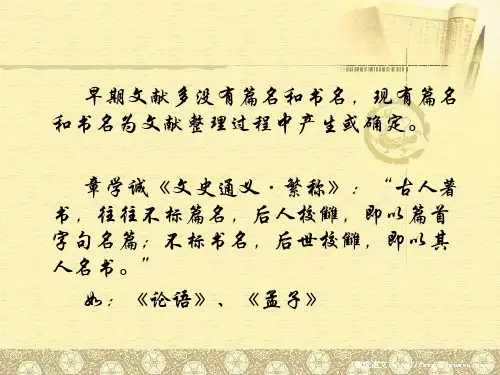 早期文献多没有篇名和书名，现有篇名
和书名为文献整理过程中产生或确定。
章学诚《文史通义·繁称》：“古人著
书，往往不标篇名，后人校雠，即以篇首
字句名篇；不标书名，后世校雠，即以其
人名书。”
如：《论语》、《孟子》